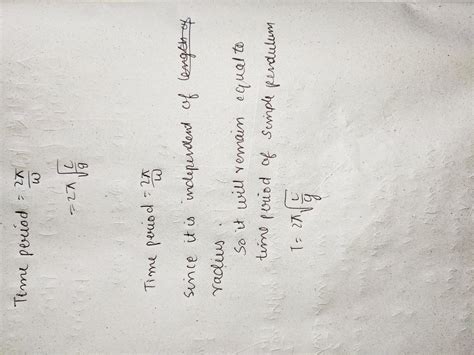 Time period = 2π/ω
= 2π√L/g
Time period = 2π/ω
since it is independent of length of
radius.
So it will remain equal to
time period of simple pendulum
T = 2π√L/g